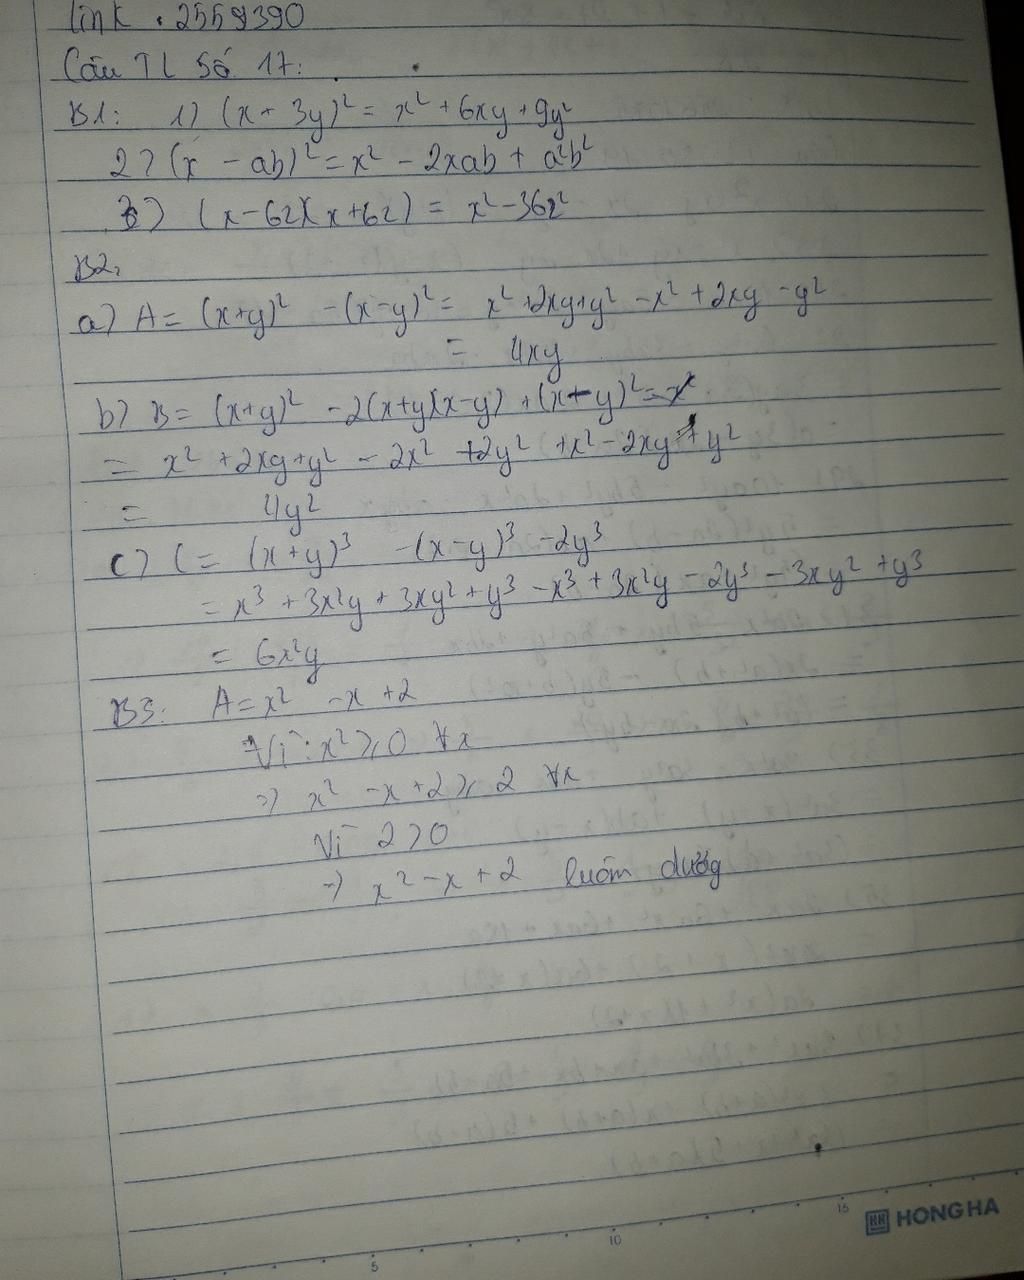 link : 2559390
Câu TL Số 17:
B1: 1) (x + 3y)² = x² + 6xy + 9y²
2) (x - ab)² = x² - 2xab + a²b²
3) (x-6z)(x+6z) = x² - 36z²
B2,
a) A = (x+y)² - (x-y)² = x² + 2xy + y² - x² + 2xy - y²
= 4xy
b) B = (x+y)² - 2(x+y)(x-y) + (x-y)² = x²
= x² + 2xy + y² - 2x² + 2y² + x² - 2xy + y²
= 4y²
c) C = (x+y)³ - (x-y)³ - 2y³
= x³ + 3x²y + 3xy² + y³ - x³ + 3x²y - 2y³ - 3xy² + y³
= 6x²y
B3: A = x² - x + 2
Vì : x² ⩾ 0 ∀x
=> x² - x + 2 ⩾ 2 ∀x
Vì 2 > 0
=> x² - x + 2 luôn dương
5 10 15
HH HONG HA